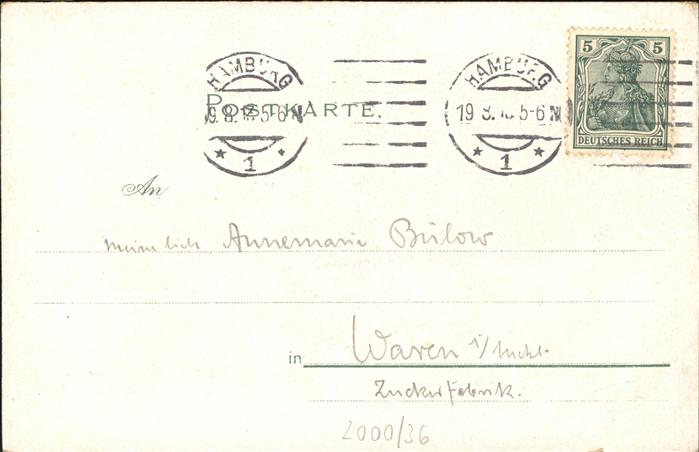 HAMBURG HAMBURG
POSTKARTE.
19 8. 5-6 N 19 8. 5-6 N
1 1
5 5
DEUTSCHES REICH
An
Annemarie Bülow
in Waren i/Meckl.
Zuckerfabrik.
2000/36